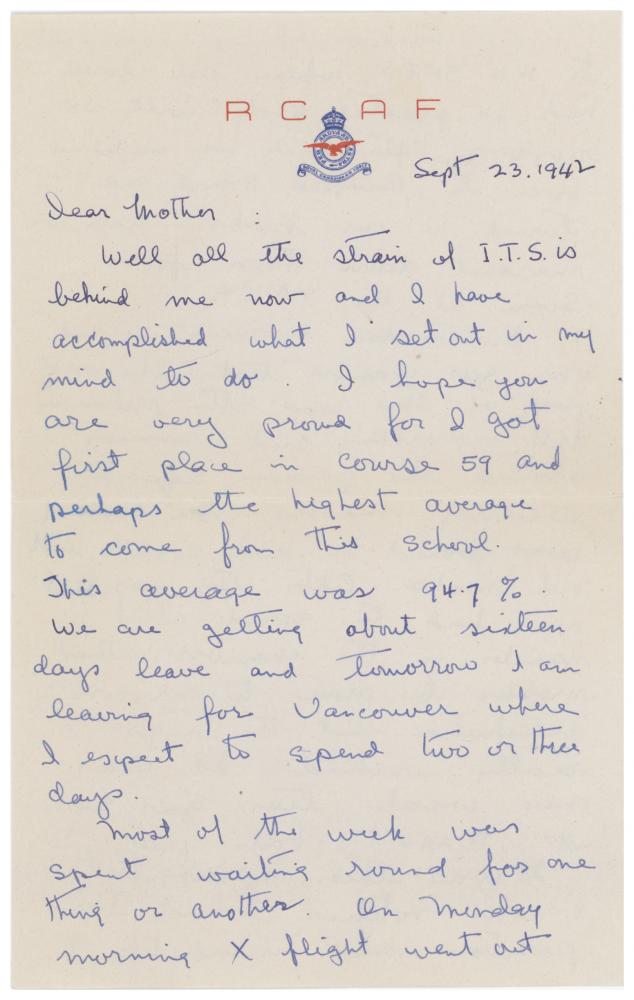 R C A F
Sept 23. 1942
Dear Mother :
Well all the strain of I.T.S. is
behind me now and I have
accomplished what I set out in my
mind to do. I hope you
are very proud for I got
first place in course 59 and
perhaps the highest average
to come from this school.
This average was 94.7 %.
We are getting about sixteen
days leave and tomorrow I am
leaving for Vancouver where
I expect to spend two or three
days.
Most of the week was
spent waiting round for one
thing or another. On Monday
morning X flight went out